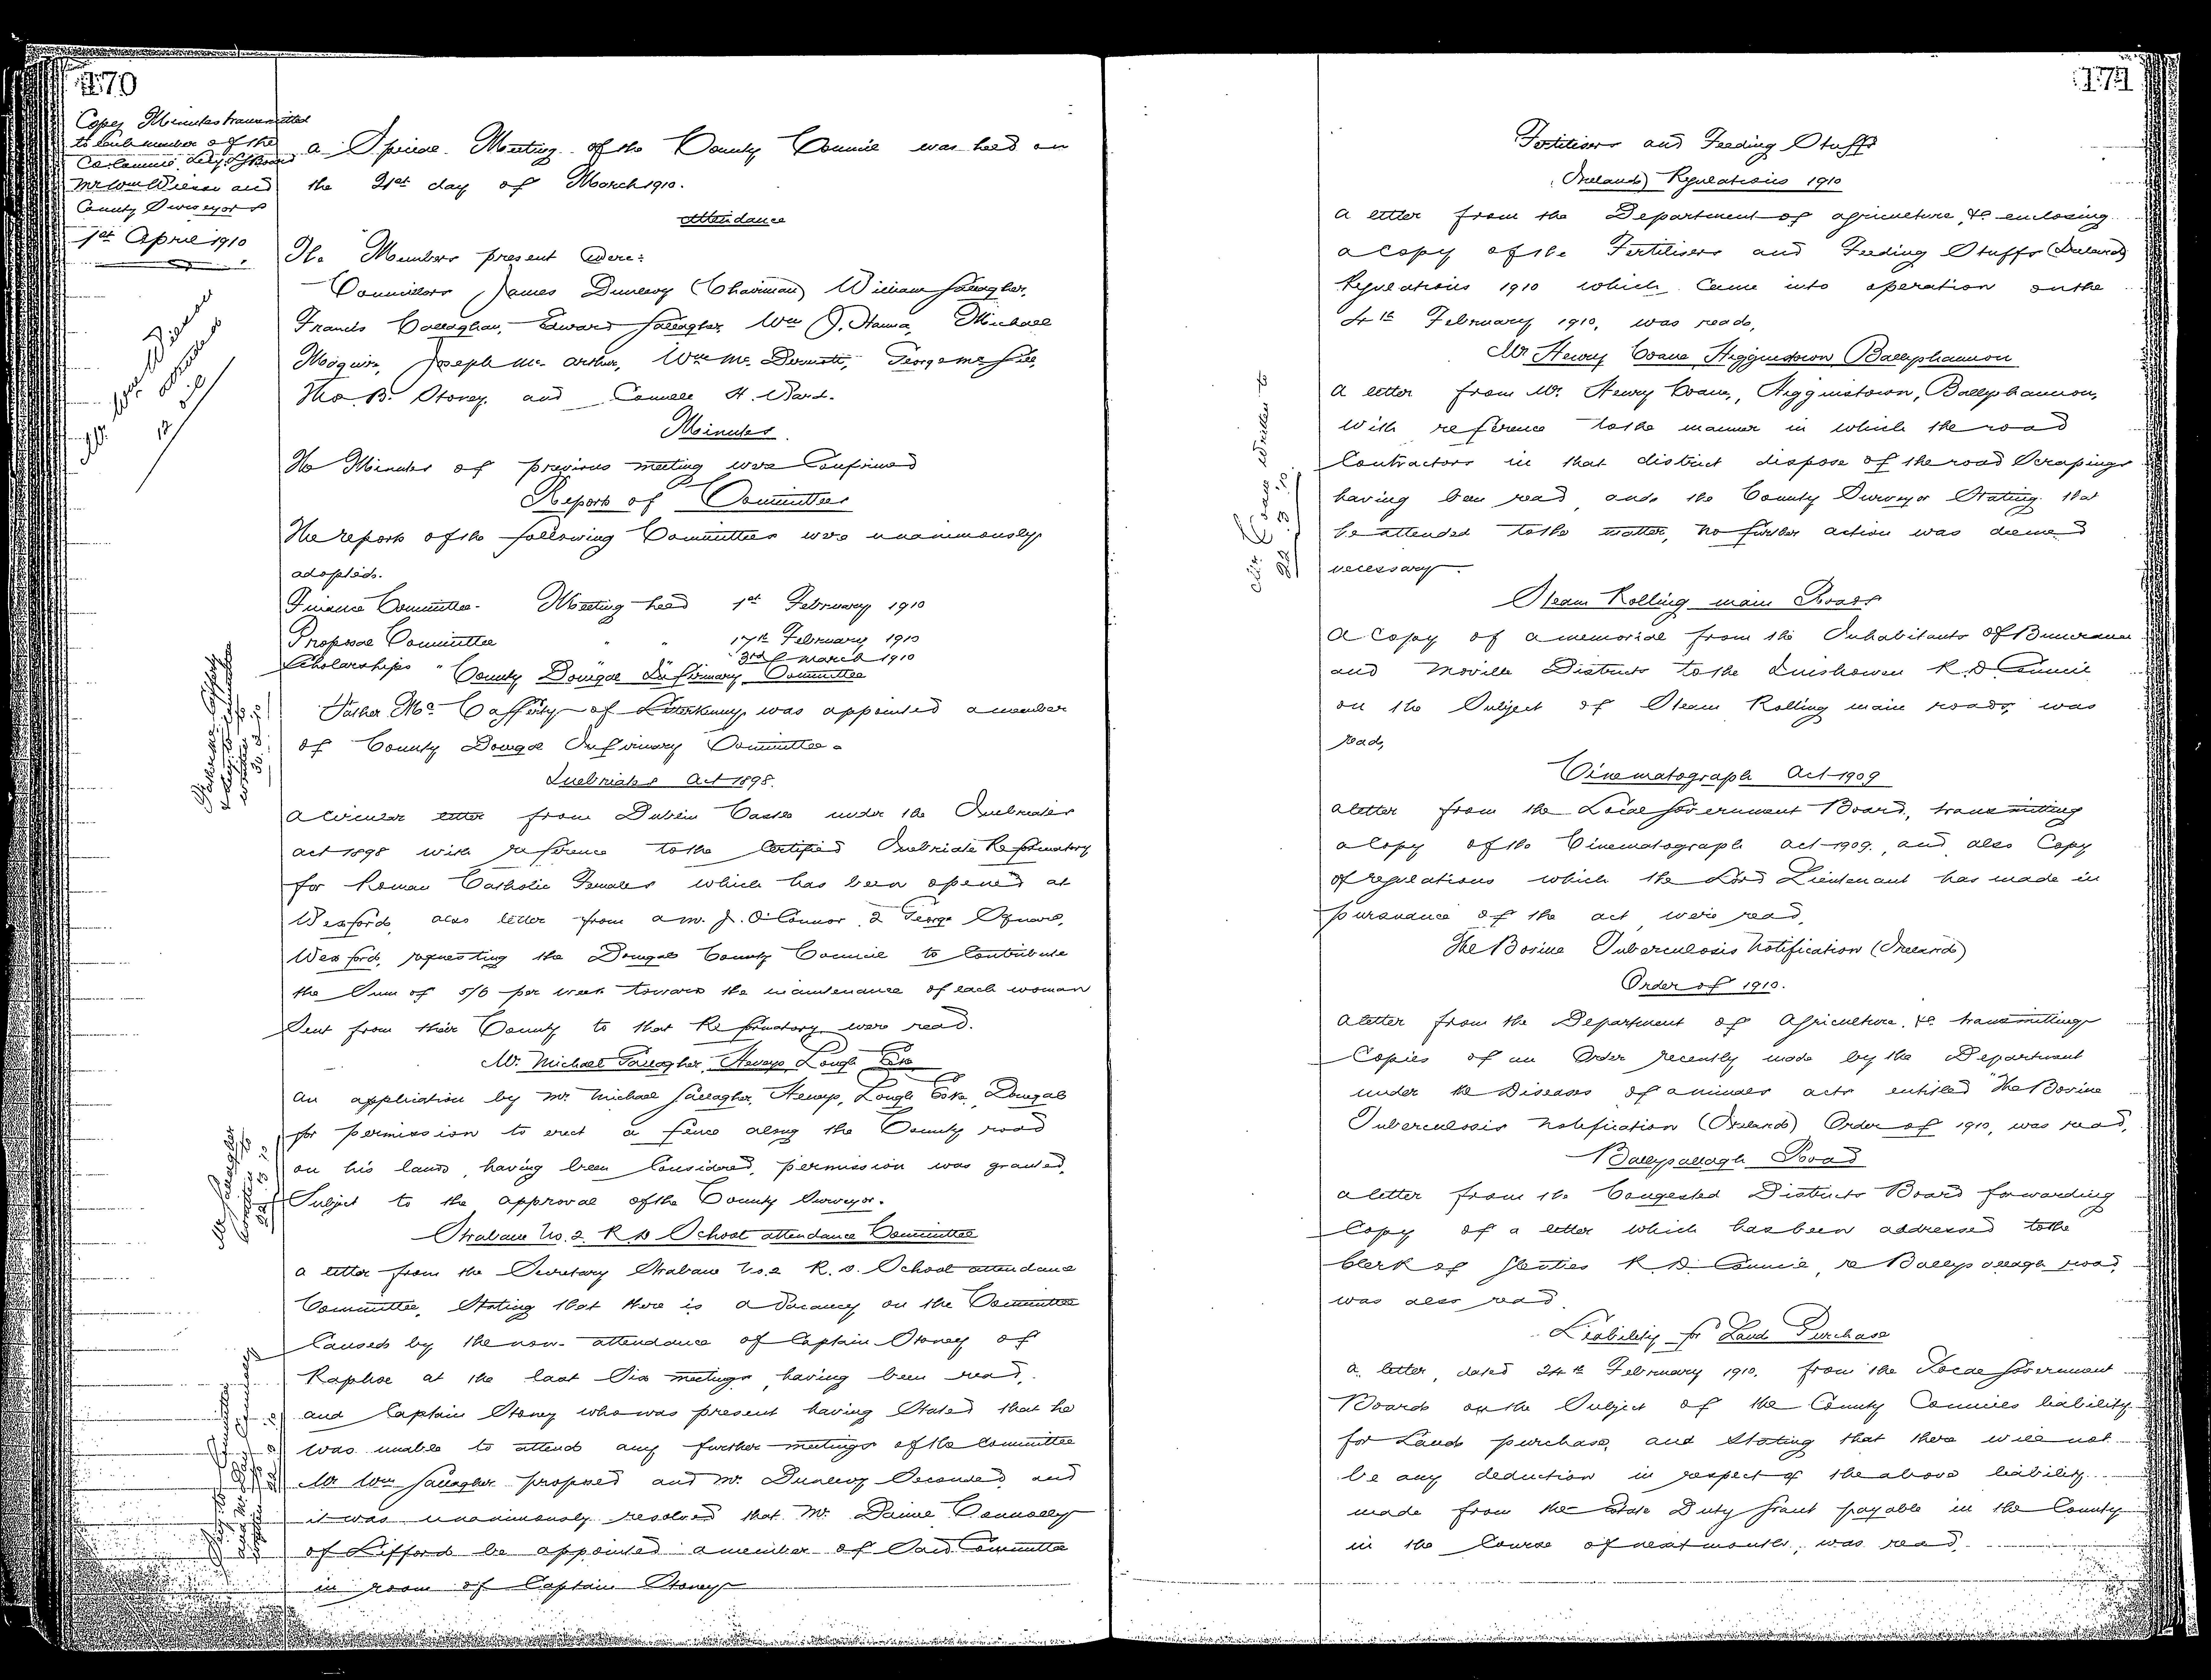 170
Copy Minutes transmitted
to each member of the
Co. Council, Secy. L. G. Board
Mr Wm Wilson and
County Surveyors
1st April 1910
A Special Meeting of the County Council was held on
the 21st day of March 1910.
Attendance
The Members present were:
Councillors James Dunlevy (Chairman) William Gallagher,
Francis Callaghan, Edward Gallagher, Wm J. Hanna, Michael
Maguire, Joseph Mc Arthur, Wm Mc Dermott, George
Thos. B. Stoney, and Connell H. Ward.
Minutes
The Minutes of previous meeting were Confirmed
Reports of Committees
The reports of the following Committees were unanimously
adopted.
Finance Committee - Meeting held 1st February 1910
Proposal Committee " " 17th February 1910
Scholarships " 3rd March 1910
County Donegal Infirmary Committee
Father Mc Cafferty of Letterkenny was appointed a member
of County Donegal Infirmary Committee.
Inebriates Act 1898.
A circular letter from Dublin Castle under the Inebriates
Act 1898 with reference to the Certified Inebriate Reformatory
for Roman Catholic Females which has been opened at
Wexford, also letter from a Mr. J. O'Connor, 2 George Square,
Wexford, requesting the Donegal County Council to Contribute
the Sum of 5/6 per week towards the maintenance of each woman
Sent from their County to that Reformatory were read.
Mr. Michael Gallagher, Lough Eske
An application by Mr. Michael Gallagher, Lough Eske, Donegal
for permission to erect a fence along the County road
on his lands, having been Considered, permission was granted,
Subject to the approval of the County Surveyor.
Strabane No. 2. R. D School attendance Committee
A letter from the Secretary Strabane No. 2 R. D. School attendance
Committee, Stating that there is a Vacancy on the Committee
Caused by the non-attendance of Captain Stoney of
Raphoe at the last Six meetings, having been read,
and Captain Stoney who was present having Stated that he
was unable to attend any further meetings of the Committee
Mr Wm Gallagher proposed and Mr. Dunlevy Seconded and
it was unanimously resolved that Mr. Daniel Connolly
of Lifford be appointed a member of Said Committee
in room of Captain Stoney
Mr Gallagher
written to
22 3 10
171
Fertilisers and Feeding Stuffs
(Ireland) Regulations 1910
A letter from the Department of Agriculture, &c enclosing
a copy of the Fertilisers and Feeding Stuffs (Ireland)
Regulations 1910 which Came into operation on the
4th February 1910, was read,
Mr Henry Crane Higginstown Ballyshannon
A letter from Mr. Henry Crane, Higginstown, Ballyshannon,
With reference to the manner in which the road
Contractors in that district dispose of the road Scrapings
having been read, and the County Surveyor Stating that
he attended to the matter, no further action was deemed
necessary.
Mr. Crane written to
22 3 10
Steam Rolling main Roads
A Copy of a memorial from the Inhabitants of Buncrana
and Moville Districts to the Inishowen R. D Council
on the Subject of Steam Rolling main roads, was
read,
Cinematograph Act 1909
A letter from the Local Government Board, transmitting
a Copy of the Cinematograph Act 1909, and also Copy
of regulations which the Lord Lieutenant has made in
pursuance of the act, were read,
The Bovine Tuberculosis Notification (Ireland)
Order of 1910.
A letter from the Department of Agriculture, &c transmitting
Copies of an Order recently made by the Department
under the Diseases of Animals Acts entitled "The Bovine
Tuberculosis Notification (Ireland) Order of 1910, was read,
Road
A letter from the Congested Districts Board forwarding
Copy of a letter which has been addressed to the
Clerk of Glenties R. D. Council, re road
was also read.
Liability for Land Purchase
A letter, dated 24th February 1910, from the Local Government
Board on the Subject of the County Councils liability
for Land purchase, and Stating that there will not
be any deduction in respect of the above liability
made from the Estate Duty Grant payable in the County
in the Course of next month, was read.